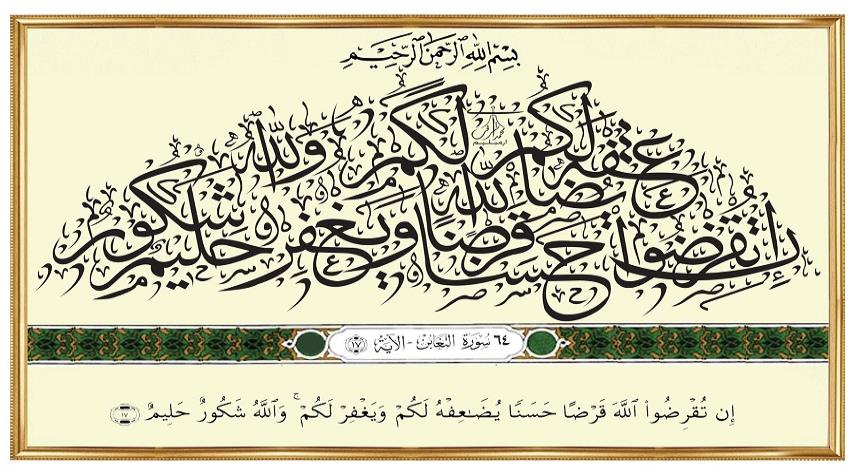 بِسْمِ اللهِ الرَّحْمَنِ الرَّحِيمِ
إِن تُقْرِضُوا اللهَ قَرْضًا حَسَنًا يُضَاعِفْهُ لَكُمْ وَيَغْفِرْ لَكُمْ وَاللهُ شَكُورٌ حَلِيمٌ
٦٤ سُورَةُ التَّغَابُنِ - الآيَةُ ١٧
إِن تُقْرِضُوا۟ ٱللَّهَ قَرْضًا حَسَنًا يُضَـٰعِفْهُ لَكُمْ وَيَغْفِرْ لَكُمْ ۚ وَٱللَّهُ شَكُورٌ حَلِيمٌ ١٧